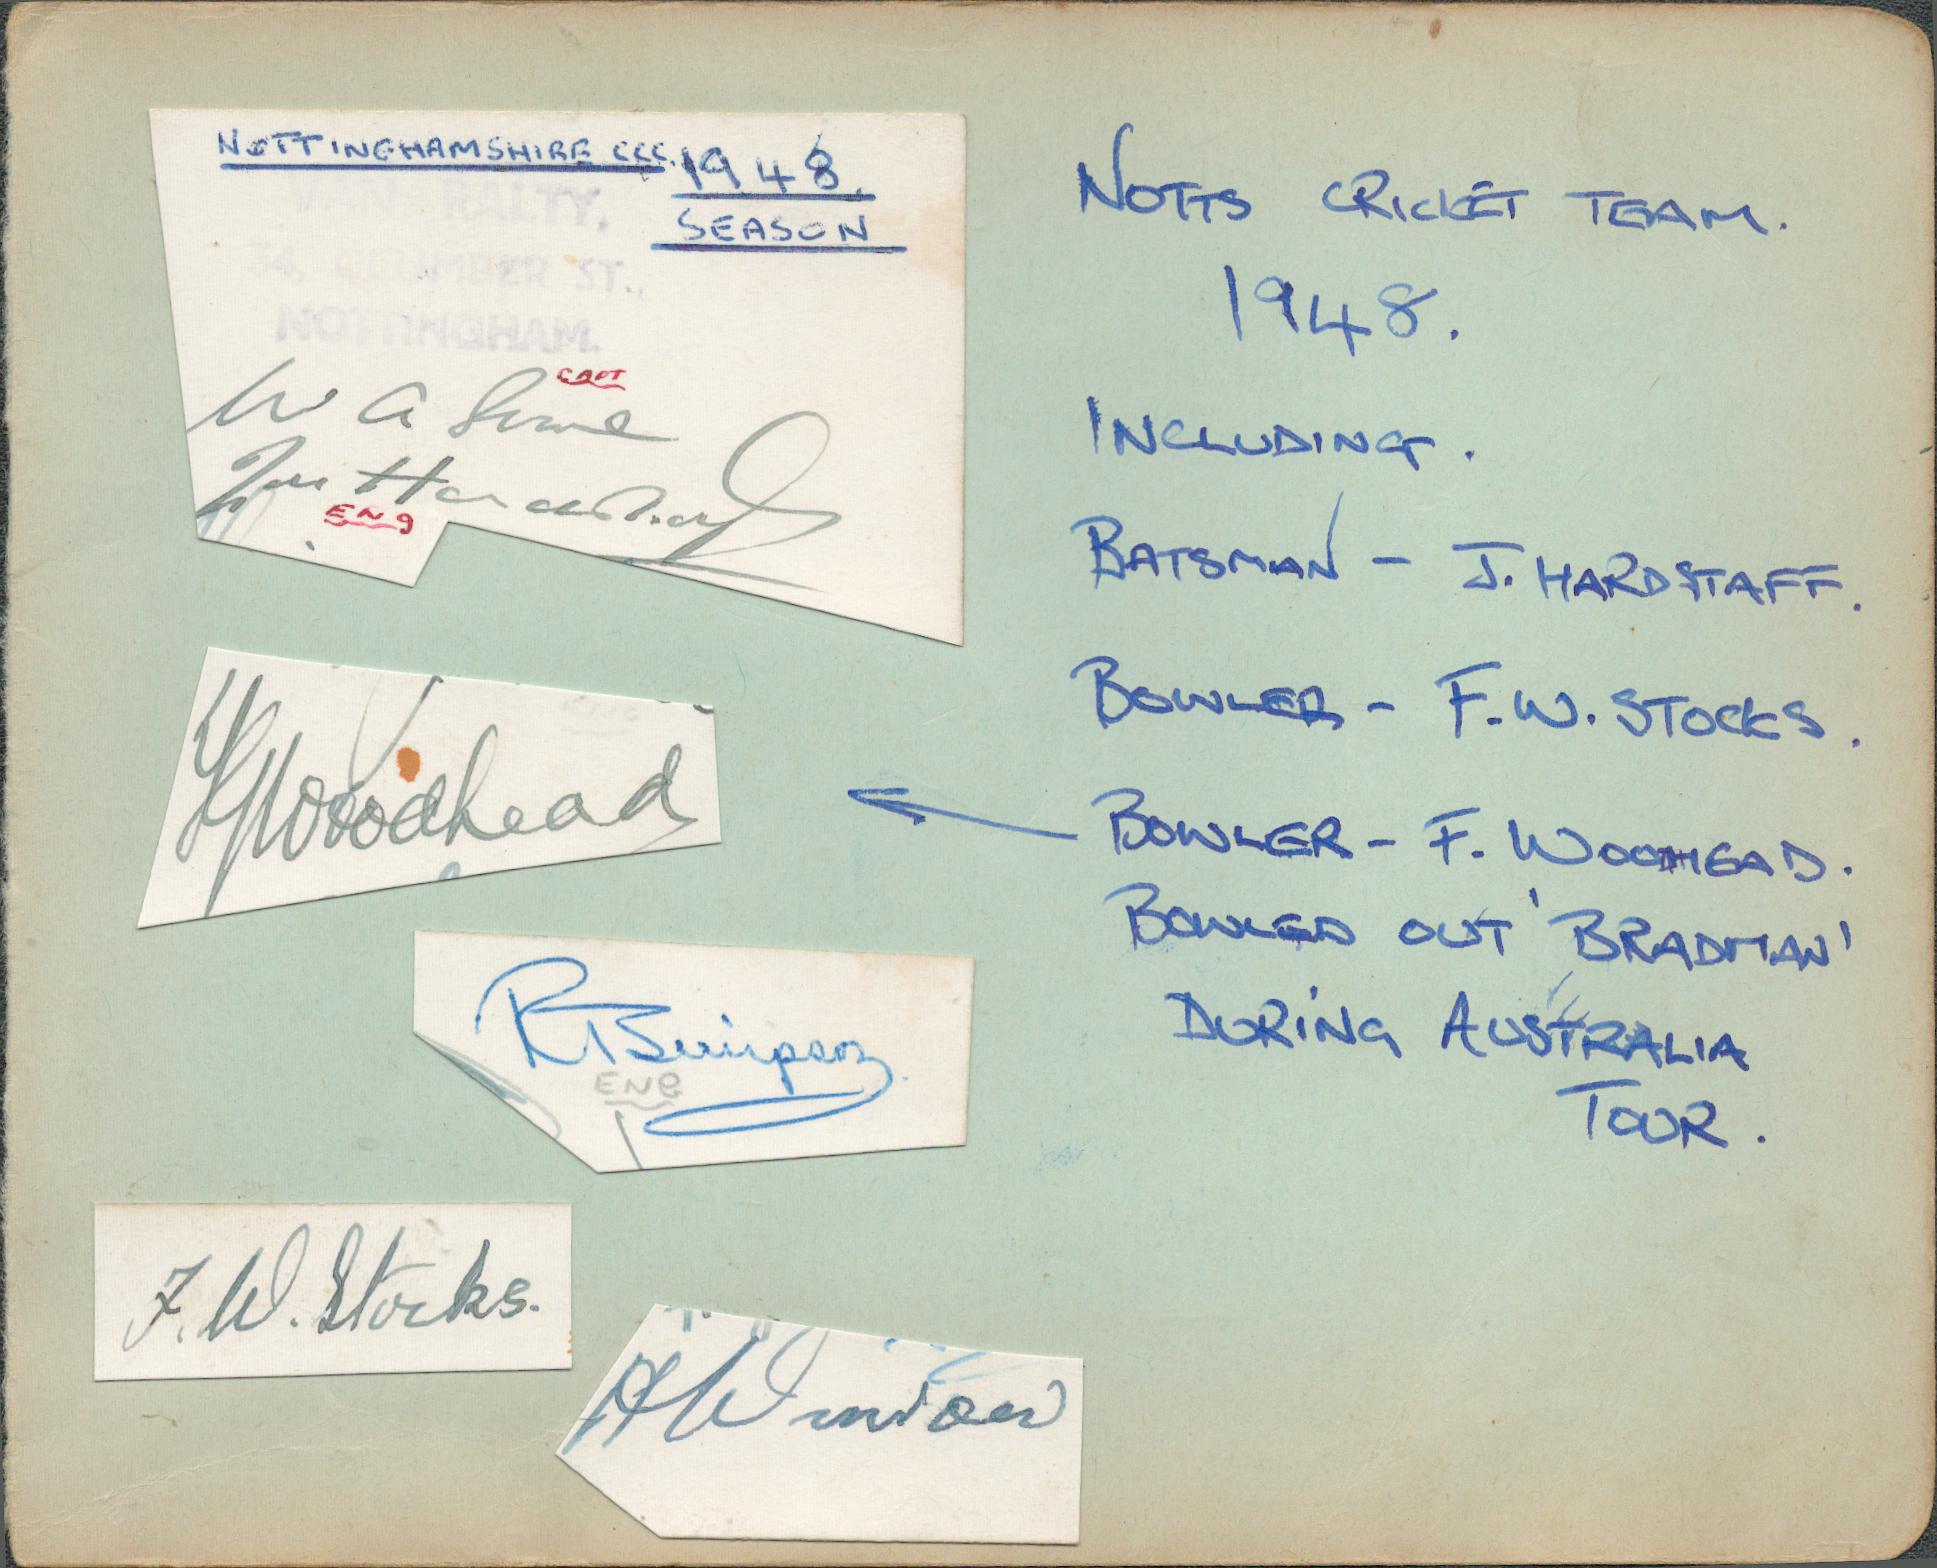 NOTTINGHAMSHIRE CCC. 1948.
SEASON
VAN RALTY,
ST.,
NOTTINGHAM.
CAPT
W A Sime
Joe Hardstaff
ENG
F G Woodhead
R T Simpson
ENG
F. W. Stocks.
H Winrow
NOTTS CRICKET TEAM.
1948.
INCLUDING.
BATSMAN - J. HARDSTAFF.
BOWLER - F.W. STOCKS.
BOWLER - F. WOODHEAD.
BOWLED OUT 'BRADMAN'
DURING AUSTRALIA
TOUR.